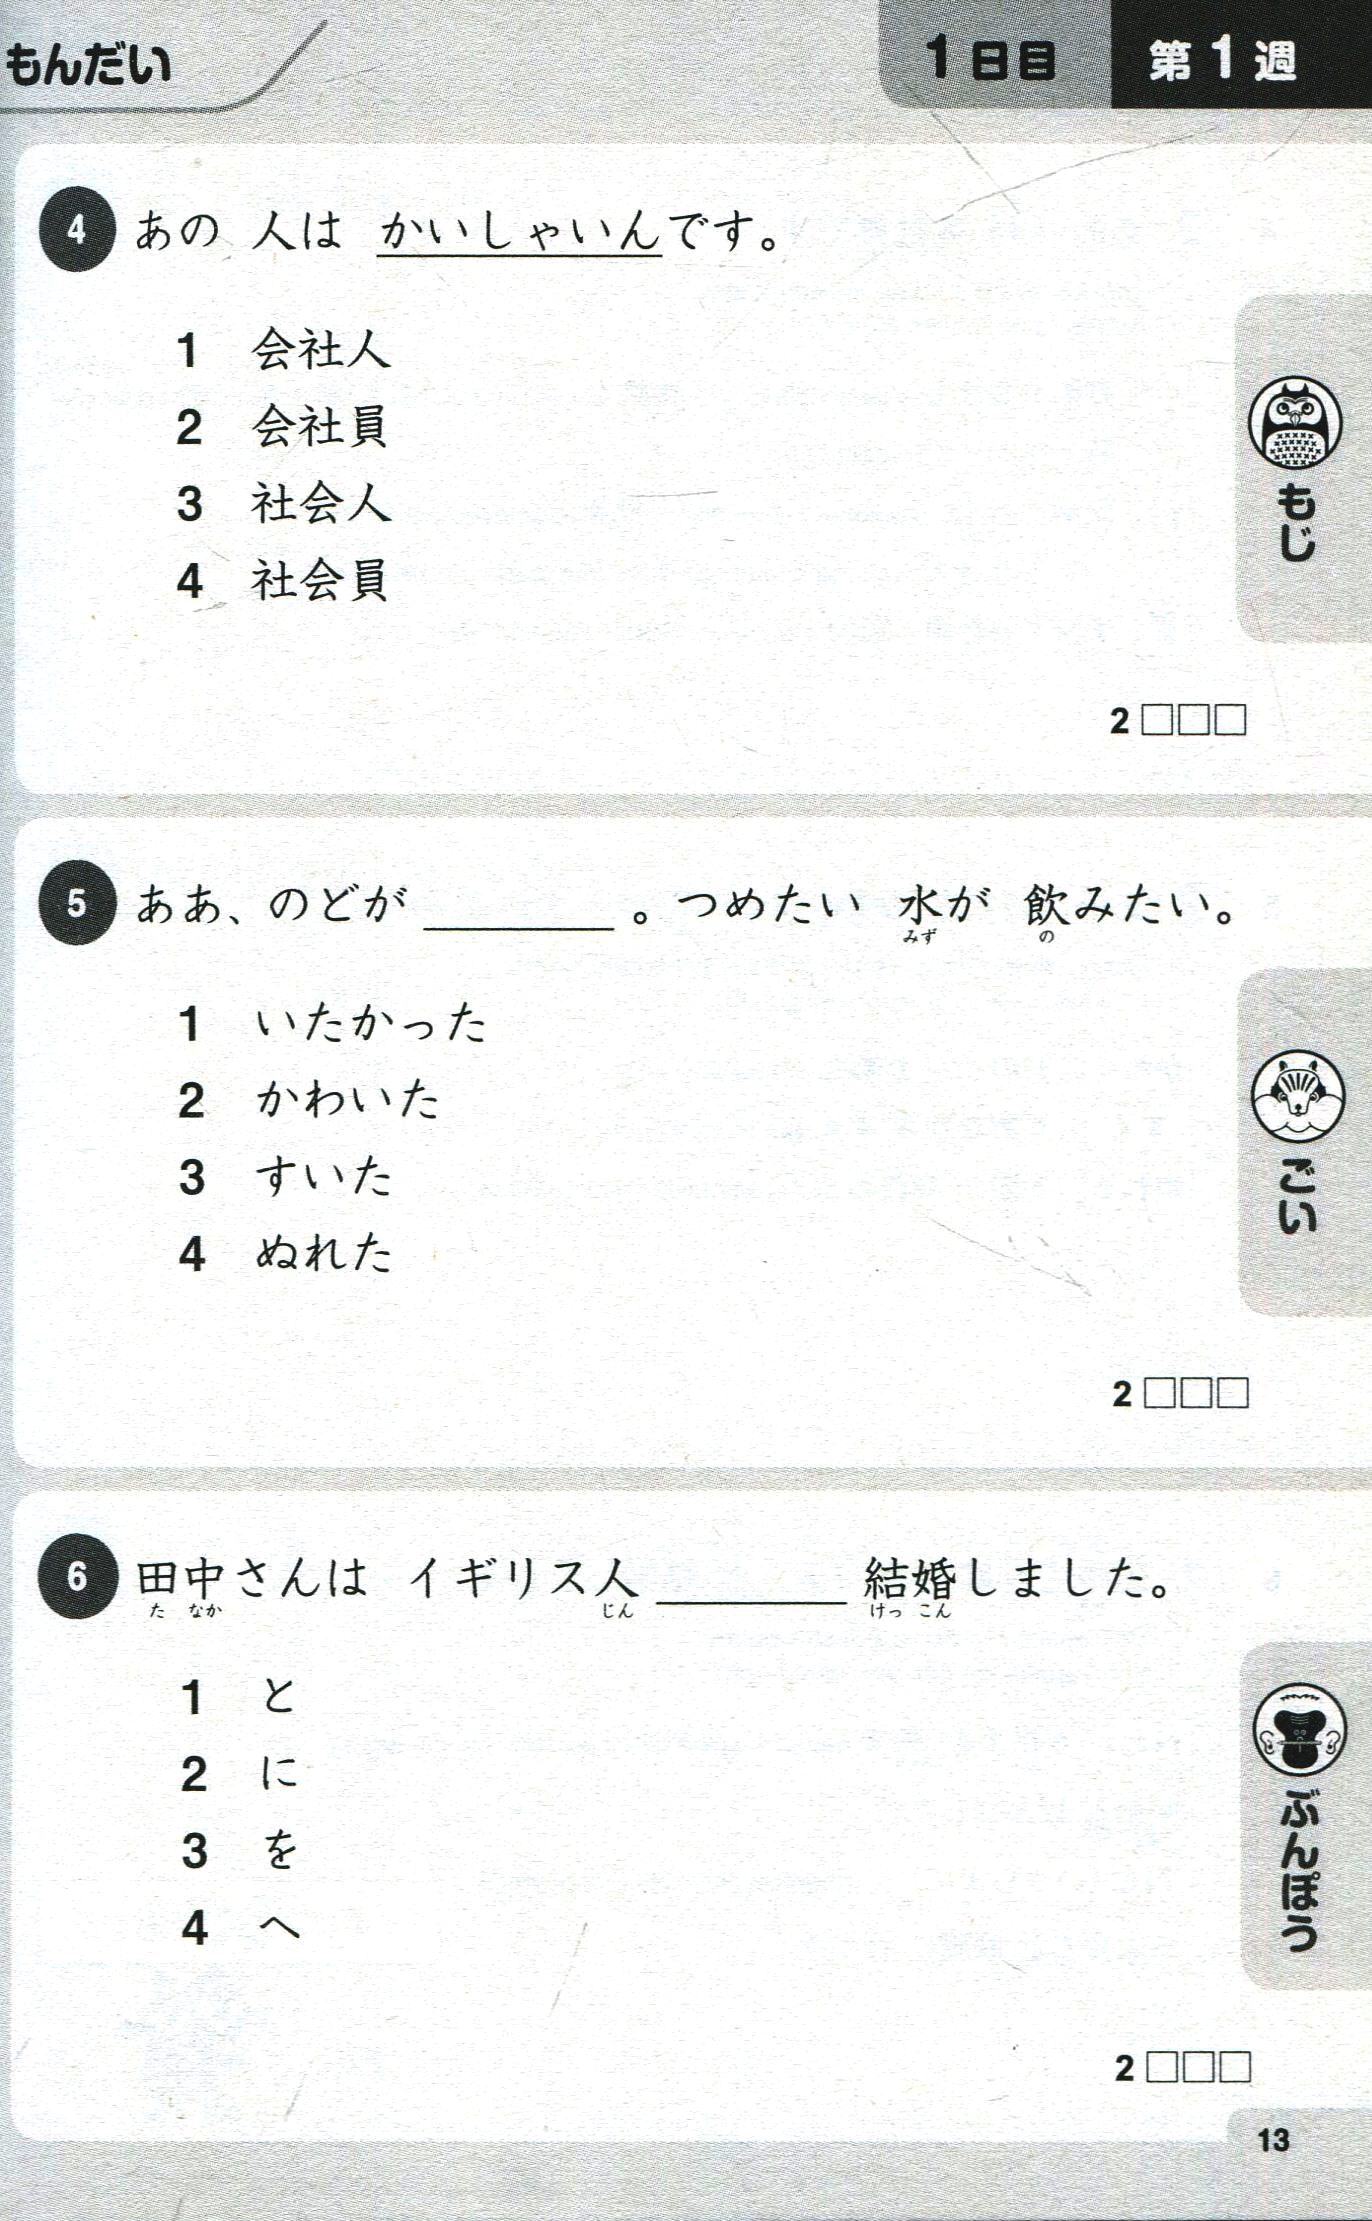 もんだい
1日目
第1週
4 あの 人は かいしゃいんです。
1 会社人
2 会社員
3 社会人
4 社会員
もじ
2 □□□
5 ああ、のどが ________ 。つめたい 水が 飲みたい。
みず の
1 いたかった
2 かわいた
3 すいた
4 ぬれた
ごい
2 □□□
6 田中さんは イギリス人 ________ 結婚しました。
た なか じん けっ こん
1 と
2 に
3 を
4 へ
ぶんぽう
2 □□□
13